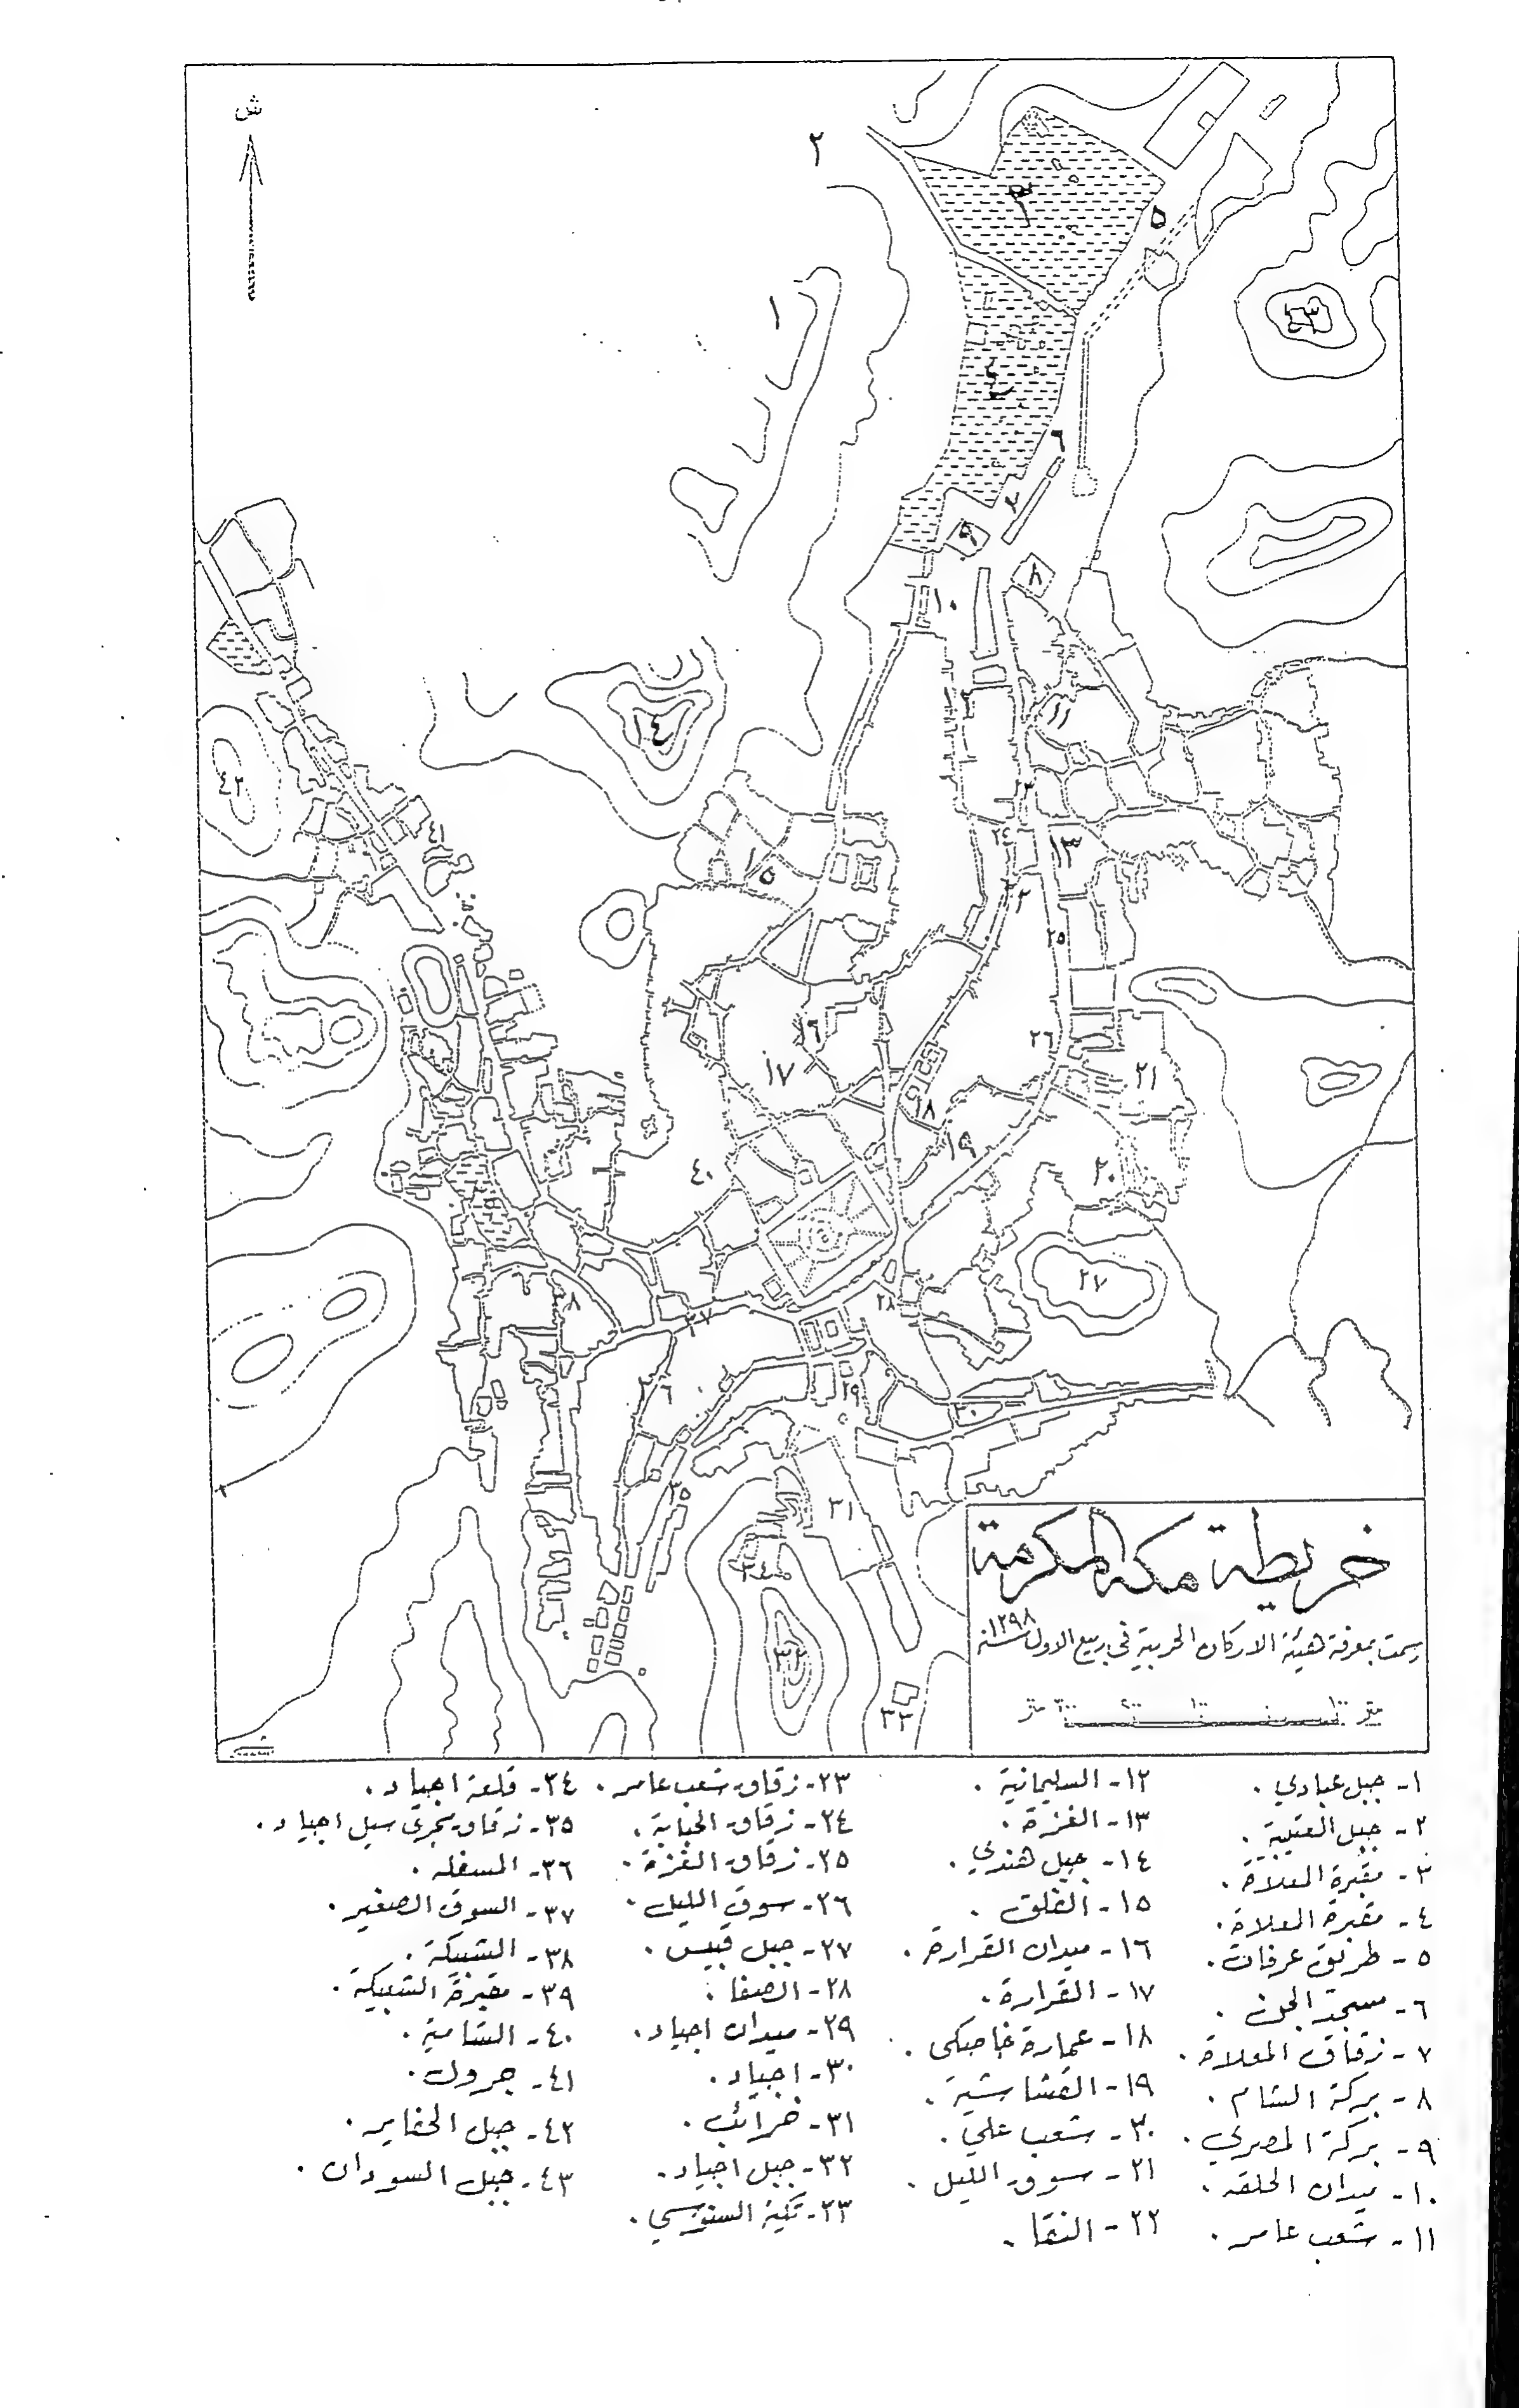 ش
٢
٣
٥
١
٤٣
٤
٦
٧
٩
٨
١٠
١٤
١١
٤٢
١٢
٤١
٢٣
٢٤
١٣
١٥
٢٢
٢٥
١٦
٢٦
١٧
٢١
١٨
١٩
٤٠
٢٠
٣٩
٢٧
٣٨
٢٨
٣٧
٣٦
٢٩
٣٠
٣٥
٣١
٣٤
٣٢
٣٣
خريطة مكة المكرمة
رسمت بمعرفة هيئة الاركان الحربية في ربيع الاول سنة ١٢٩٨
متر ١٠٠ ٠ ١٠٠ ٢٠٠ ٣٠٠ متر
١- جبل عبادي .
٢- جبل العتيبية .
٣- مقبرة المعلاة .
٤- مقبرة المعلاة .
٥- طريق عرفات .
٦- مسجد الجن .
٧- زقاق المعلاة .
٨- بركة الشام .
٩- بركة المصري .
١٠- ميدان الحلقه .
١١- شعب عامر .
١٢- السليمانية .
١٣- الغزة .
١٤- جبل هندي .
١٥- الفلق .
١٦- ميدان القرارة .
١٧- القرارة .
١٨- عمارة خاصكى .
١٩- القشاشية .
٢٠- شعب علي .
٢١- سوق الليل .
٢٢- النقا .
٢٣- زقاق شعب عامر .
٢٤- زقاق .
٢٥- زقاق الغزة .
٢٦- سوق الليل .
٢٧- جبل قبيس .
٢٨- الصفا .
٢٩- ميدان اجياد .
٣٠- اجياد .
٣١- خرائب .
٣٢- جبل اجياد .
٣٣- تكية السنوسي .
٣٤- قلعة اجياد .
٣٥- زقاق مجرى سيل اجياد .
٣٦- المسفله .
٣٧- السوق الصغير .
٣٨- الشبيكة .
٣٩- مقبرة الشبيكة .
٤٠- الشامية .
٤١- جرول .
٤٢- جبل الحفاير .
٤٣- جبل السودان .